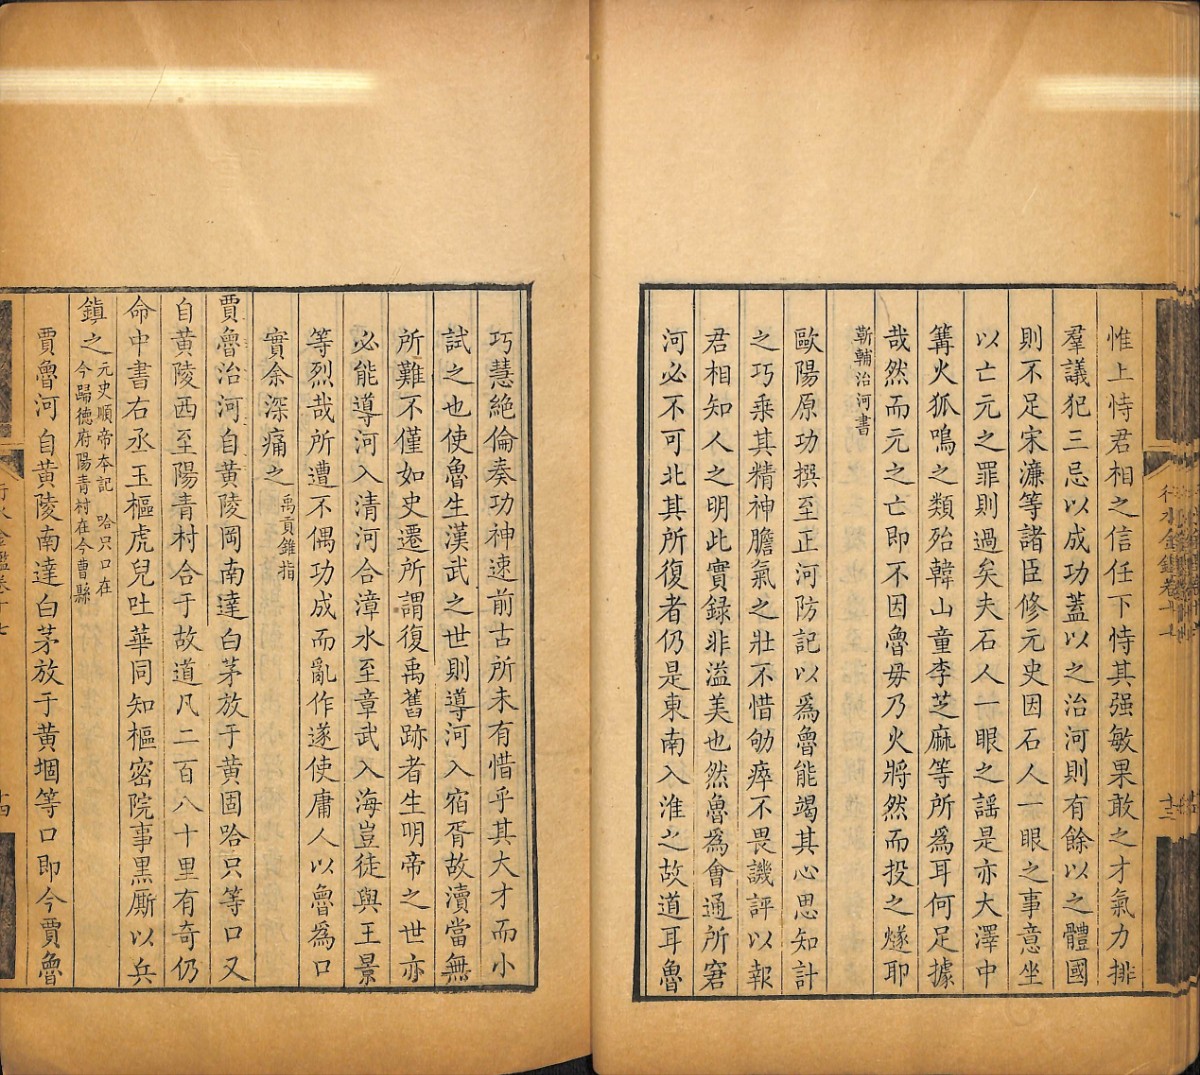 惟上恃君相之信任下恃其强敏果敢之才氣力排
羣議犯三忌以成功蓋以之治河則有餘以之體國
則不足宋濂等諸臣修元史因石人一眼之事意坐
以亡元之罪則過矣夫石人一眼之謡是亦大澤中
篝火狐鳴之類殆韓山童李芝麻等所爲耳何足據
哉然而元之亡即不因魯毋乃火將然而投之燧耶
靳輔治河書
歐陽原功撰至正河防記以爲魯能竭其心思知計
之巧乗其精神膽氣之壯不惜劬瘁不畏譏評以報
君相知人之明此實録非溢美也然魯爲會通所窘
河必不可北其所復者仍是東南入淮之故道耳魯
巧慧絶倫奏功神速前古所未有惜乎其大才而小
試之也使魯生漢武之世則導河入宿胥故瀆當無
所難不僅如史遷所謂復禹舊跡者生明帝之世亦
必能導河入清河合漳水至章武入海豈徒與王景
等烈哉所遭不偶功成而亂作遂使庸人以魯爲口
實余深痛之禹貢錐指
賈魯治河自黄陵岡南達白茅放于黄固哈只等口又
自黄陵西至陽青村合于故道凡二百八十里有奇仍
命中書右丞玉樞虎兒吐華同知樞密院事黒厮以兵
鎮之元史順帝本記 哈只口在
今歸德府陽青村在今曹縣
賈魯河自黄陵南達白茅放于黄堌等口即今賈魯
行水金鑑卷十七